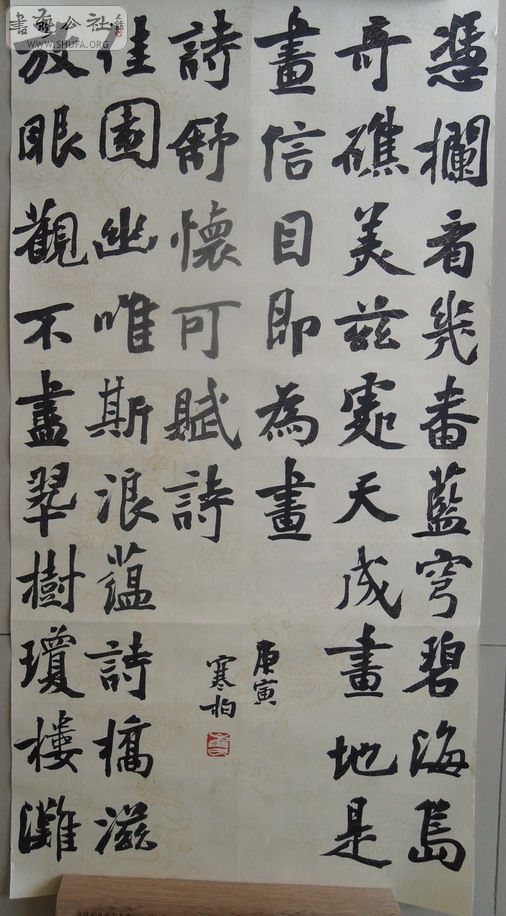 憑欄看幾番藍穹碧海島
奇礁美兹處天成畫地是
畫信目即為畫
放眼觀不盡翠樹瓊樓灘
佳園幽唯斯浪蘊詩橋滋
詩舒懷可賦詩
庚寅
寒柏
書法公社
WWW.SHUFA.ORG